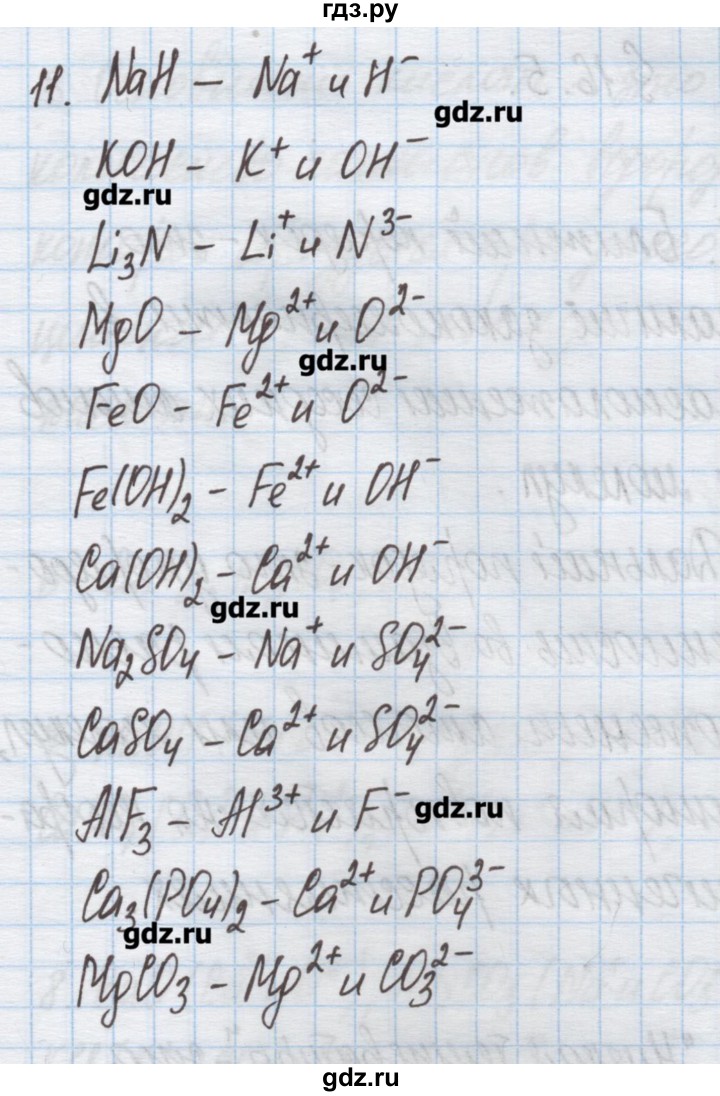 гдз.ру
11. NaH – Na⁺ и H⁻
gdz.ru
KOH – K⁺ и OH⁻
gdz.ru
Li₃N – Li⁺ и N³⁻
MgO – Mg²⁺ и O²⁻
gdz.ru
FeO – Fe²⁺ и O²⁻
Fe(OH)₂ – Fe²⁺ и OH⁻
Ca(OH)₂ – Ca²⁺ и OH⁻
gdz.ru
Na₂SO₄ – Na⁺ и SO₄²⁻
CaSO₄ – Ca²⁺ и SO₄²⁻
AlF₃ – Al³⁺ и F⁻
gdz.ru
Ca₃(PO₄)₂ – Ca²⁺ и PO₄³⁻
gdz.ru
MgCO₃ – Mg²⁺ и CO₃²⁻
gdz.ru